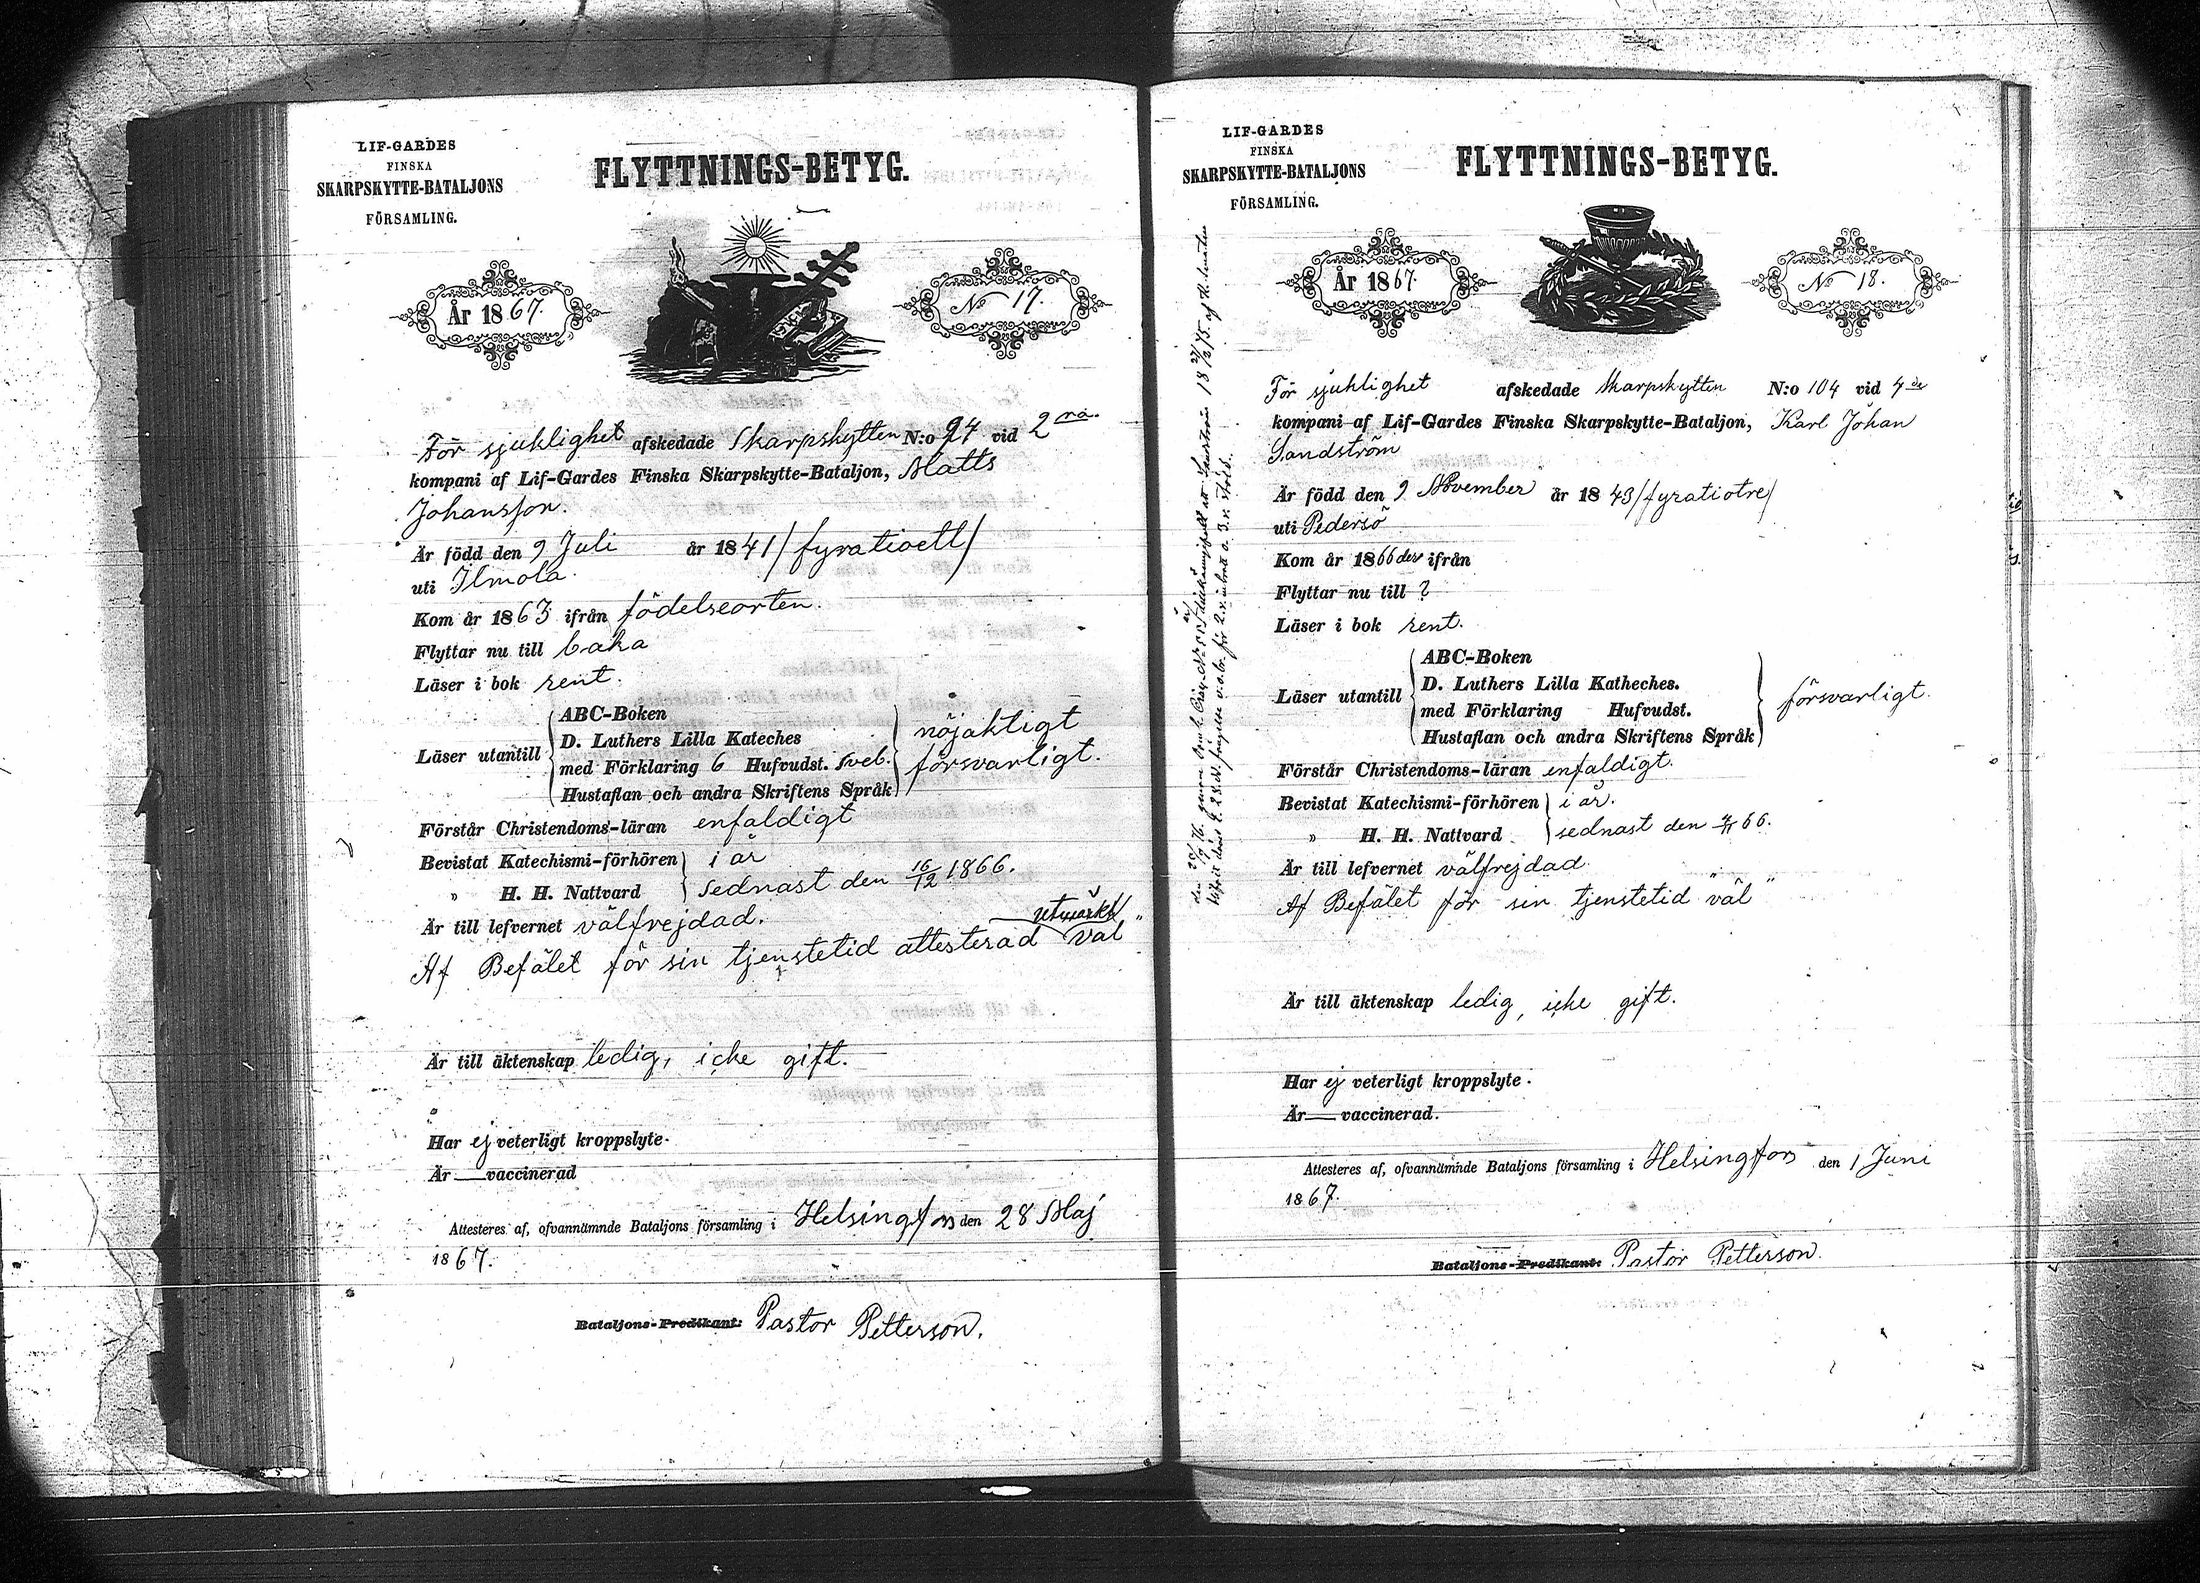 LIF-GARDES
FINSKA
SKARPSKYTTE-BATALJONS
FÖRSAMLING.
FLYTTNINGS-BETYG.
År 1867.
No 17.
För sjuklighet afskedade Skarpskytten N:o 94 vid 2ra.
kompani af Lif-Gardes Finska Skarpskytte-Bataljon, Matts
Johansson.
Är född den 9 Juli år 1841 / fyratioett /
uti Ilmola.
Kom år 1863 ifrån födelseorten.
Flyttar nu till baka
Läser i bok rent.
Läser utantill
ABC-Boken
D. Luthers Lilla Kateches
med Förklaring 6 Hufvudst. Sveb.
Hustaflan och andra Skriftens Språk
nöjaktigt
försvarligt.
Förstår Christendoms-läran enfaldigt
Bevistat Katechismi-förhören i år
" H. H. Nattvard sednast den 16/12 1866.
Är till lefvernet välfrejdad.
utmärkt
Af Befälet för sin tjenstetid attesterad väl"
Är till äktenskap ledig, icke gift.
Har ej veterligt kroppslyte.
Är — vaccinerad
Attesteres af, ofvannämnde Bataljons församling i Helsingfors den 28 Maj
1867.
Bataljons-Predikant: Pastor Petterson.
LIF-GARDES
FINSKA
SKARPSKYTTE-BATALJONS
FÖRSAMLING.
FLYTTNINGS-BETYG.
År 1867.
No 18.
För sjuklighet afskedade Skarpskytten N:o 104 vid 4de
kompani af Lif-Gardes Finska Skarpskytte-Bataljon, Karl Johan
Sandström
Är född den 9 November år 1843 / fyratiotre /
uti Pedersö
Kom år 1866 ders ifrån
Flyttar nu till ?
Läser i bok rent.
Läser utantill
ABC-Boken
D. Luthers Lilla Katheches.
med Förklaring Hufvudst.
Hustaflan och andra Skriftens Språk
försvarligt.
Förstår Christendoms-läran enfaldigt.
Bevistat Katechismi-förhören i år.
" H. H. Nattvard sednast den 66.
Är till lefvernet välfrejdad.
Af Befälet för sin tjenstetid "väl"
Är till äktenskap ledig, icke gift.
Har ej veterligt kroppslyte.
Är — vaccinerad.
Attesteres af, ofvannämnde Bataljons församling i Helsingfors den 1 Juni
1867.
Bataljons-Predikant: Pastor Petterson.